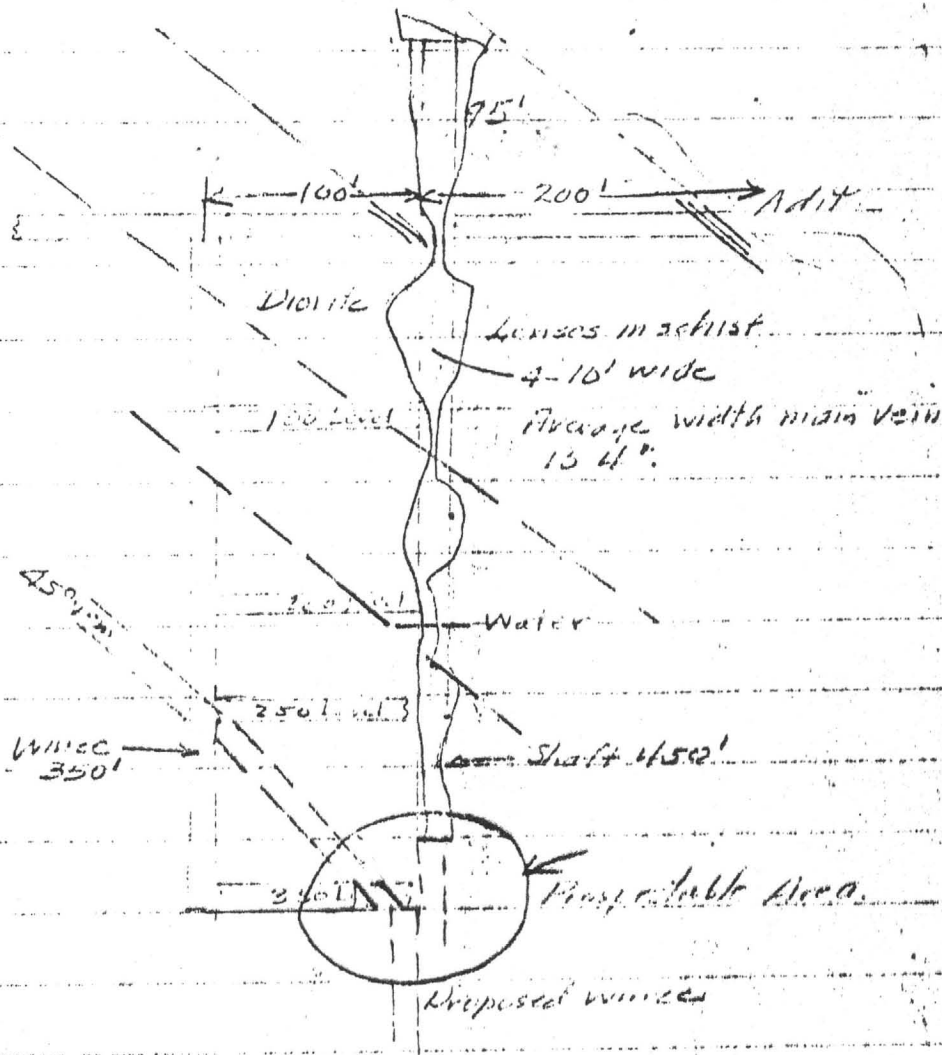 75'
100'
200'
Adit
Diorite
Lenses in schist
4-10' wide
100 Level
Average width main vein
is 4".
200 Level
Water
45°
250 Level
Winze
350'
Shaft 450'
350 L
Prospectable Area.
Proposed winze